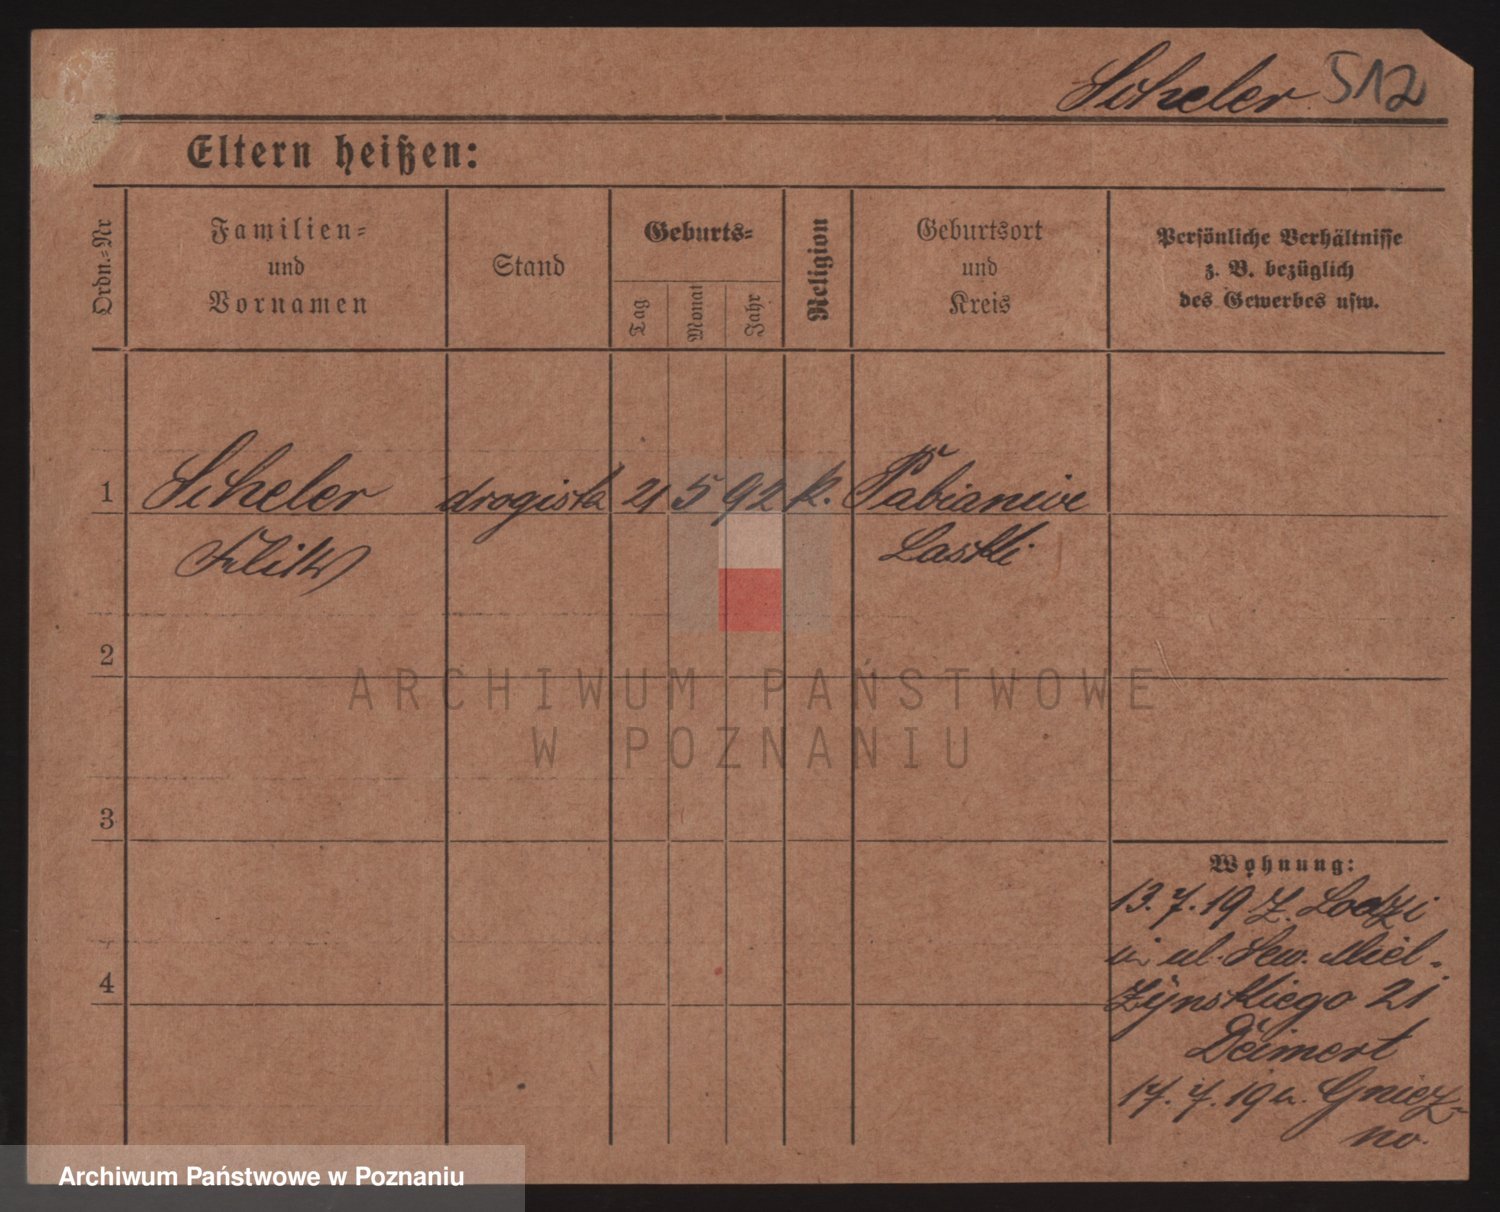 Scheler 512
Eltern heißen:
Ordn.-Nr
Familien-
und
Vornamen
Stand
Geburts-
Tag
Monat
Jahr
Religion
Geburtsort
und
Kreis
Persönliche Verhältnisse
z. B. bezüglich
des Gewerbes usw.
1 Scheler drogista 21 5 92 k. Pabianice
Feliks Laski
2
3
4
Wohnung:
13. 7. 19 z. Lodzi
ul. Sew. Miel-
żynskiego 21
Deimert
17. 7. 19 n. Gniez-
no.
ARCHIWUM PAŃSTWOWE
W POZNANIU
Archiwum Państwowe w Poznaniu